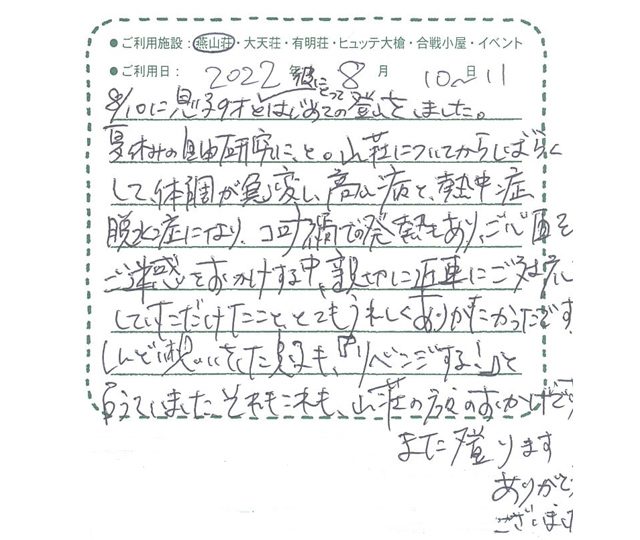 ●ご利用施設：燕山荘・大天荘・有明荘・ヒュッテ大槍・合戦小屋・イベント
●ご利用日： 2022 年 8 月 10〜11 日
彼にとって
8/10に息子9才とはじめての登山をしました。
夏休みの自由研究にと。山荘についてからしばらく
して、体調が急変し、高山病と、熱中症
脱水症になり、コロナ禍での発熱もあり、ご心配を
ご迷惑をおかけする中、親切に丁寧にご対応
していただけたこと、とてもうれしくありがたかったです
しんどい想いをした息子も、「リベンジする！」と
言っていました。それもこれも、山荘の方々のおかげで
また登ります
ありがとう
ございます